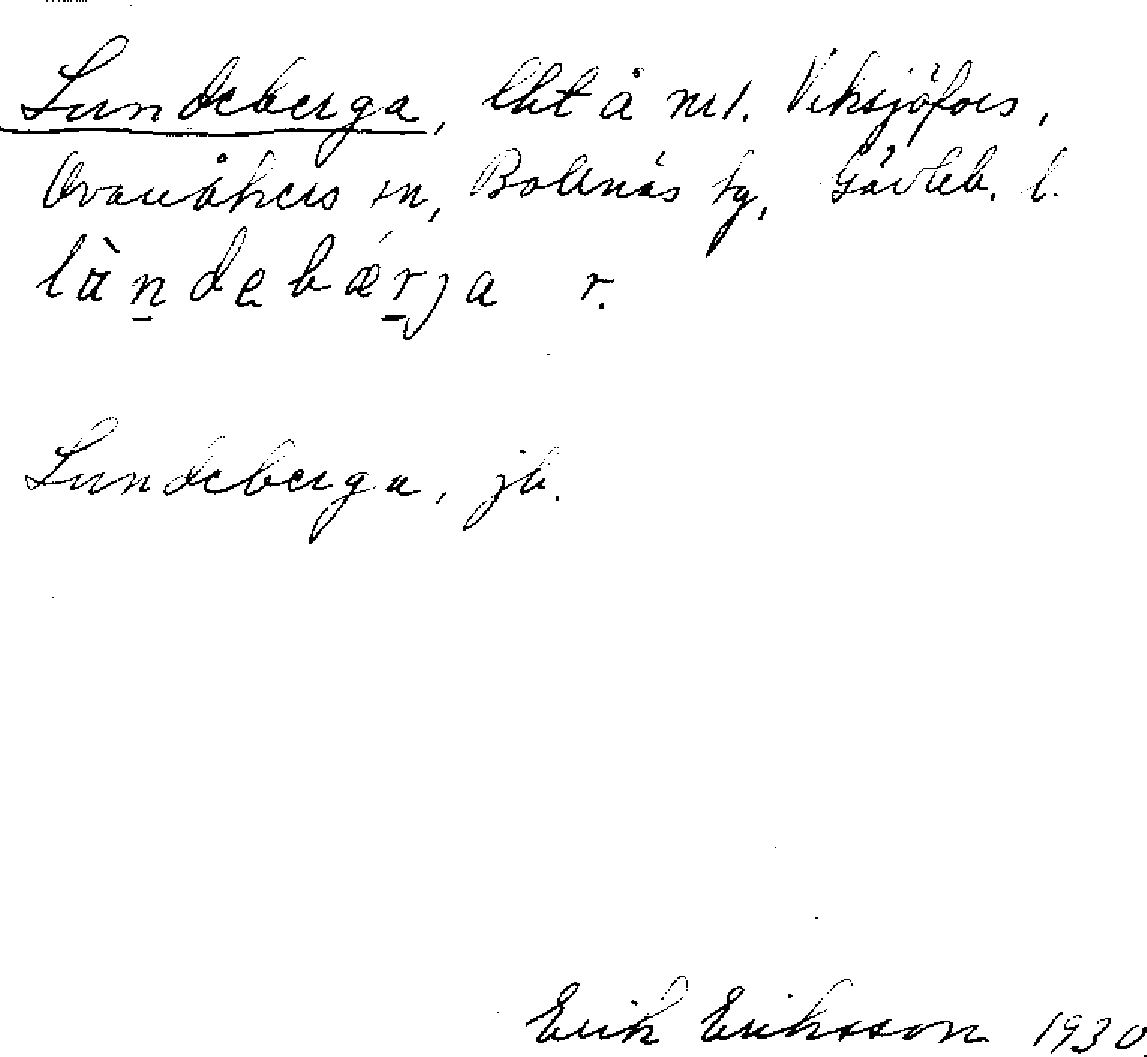 Lundeberga, lht å nr 1. Viksjöfors,
Ovanåkers sn, Bollnäs tg, Gävleb. l.
làndebǽrja r.
Lundeberga, jb.
Erik Eriksson 1930